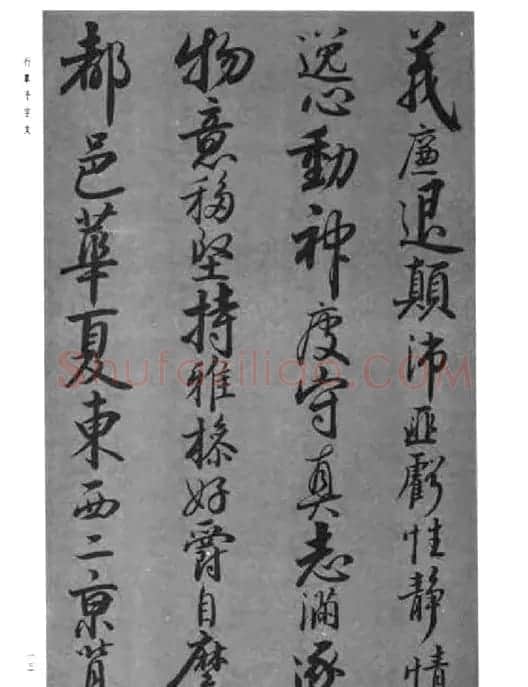 行草千字文
義廉退顛沛匪虧性静情
逸心動神疲守真志滿逐
物意移堅持雅操好爵自縻
都邑華夏東西二京背
一三
Shufaziliao.COM